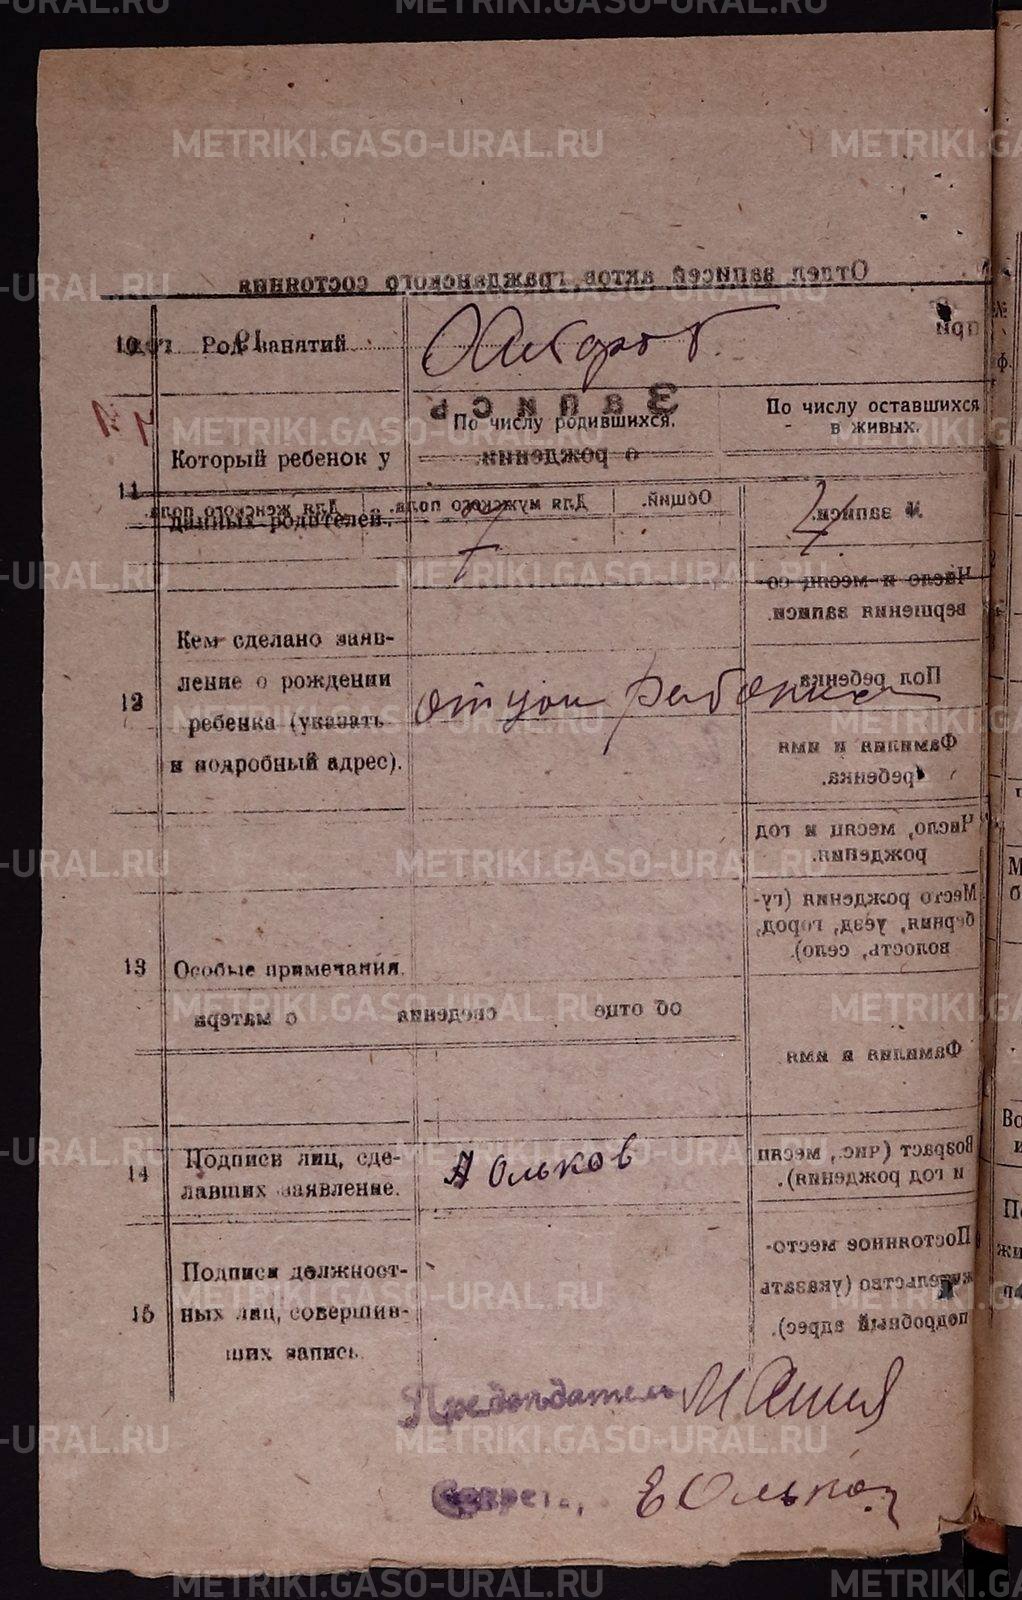 METRIKI.GASO-URAL.RU
Отдел записей актов гражданского состояния
10 Род занятий
Запись
о рождении.
По числу родившихся.
По числу оставшихся
в живых.
11 Который ребенок у
данных родителей.
7
4
Общий.
Для мужского пола.
Для женского пола.
№ записи.
Число и месяц со-
вершения записи.
12 Кем сделано заяв-
ление о рождении
ребенка (указать
и подробный адрес).
отцом ребенка
Пол ребенка
Фамилия и имя
ребенка.
Число, месяц и год
рождения.
Место рождения (гу-
берния, уезд, город,
волость, село).
13 Особые примечания.
об отце
сведения
о матери
Фамилия и имя.
14 Подписи лиц, сде-
лавших заявление.
А Ольков
Возраст (чис., месяц
и год рождения).
15 Подписи должност-
ных лиц, совершив-
ших запись.
Постоянное место-
жительство (указать
подробный адрес).
Председатель
Секрет.
Е Ольков